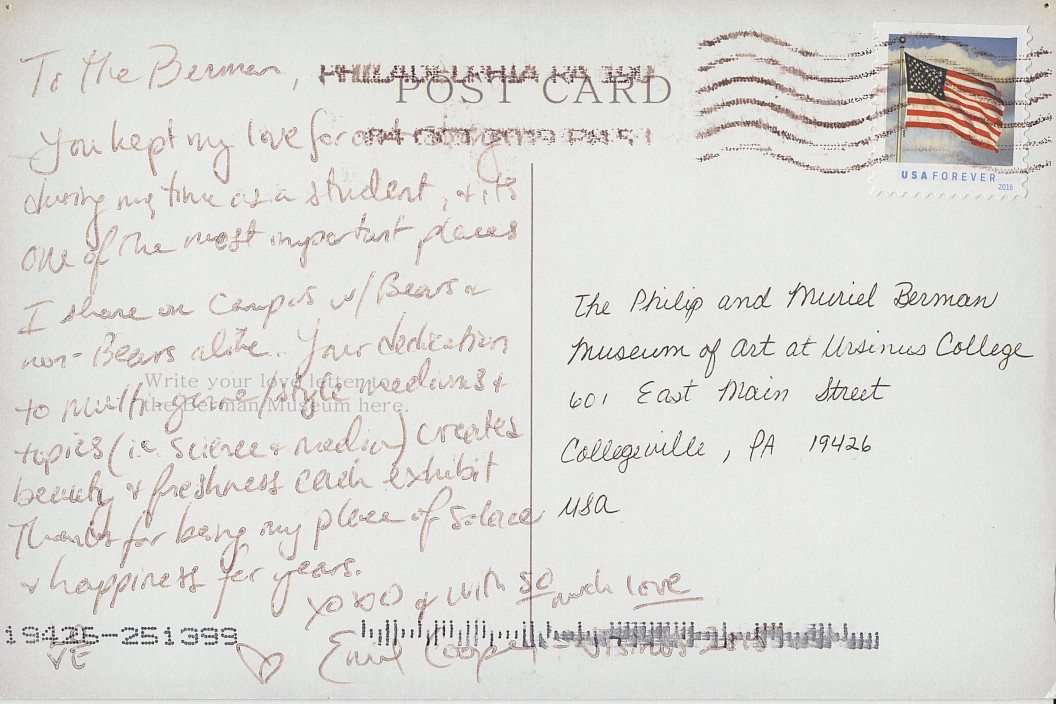 To the Berman,
PHILADELPHIA PA 190
POST CARD
You kept my love for art strong
04 OCT 2019 PM 5 L
USA FOREVER
2016
during my time as a student, & it's
one of the most important places
I share on campus w/ Bears &
non-Bears alike. Your dedication
Write your love letter to
the Berman Museum here.
to multi-genre/style mediums &
topics (i.e. science & media) creates
beauty & freshness each exhibit
Thanks for being my place of solace
& happiness for years.
xoxo & with so much love
Cooper - Ursinus
The Philip and Muriel Berman
Museum of Art at Ursinus College
601 East Main Street
Collegeville, PA 19426
USA
19426-251399